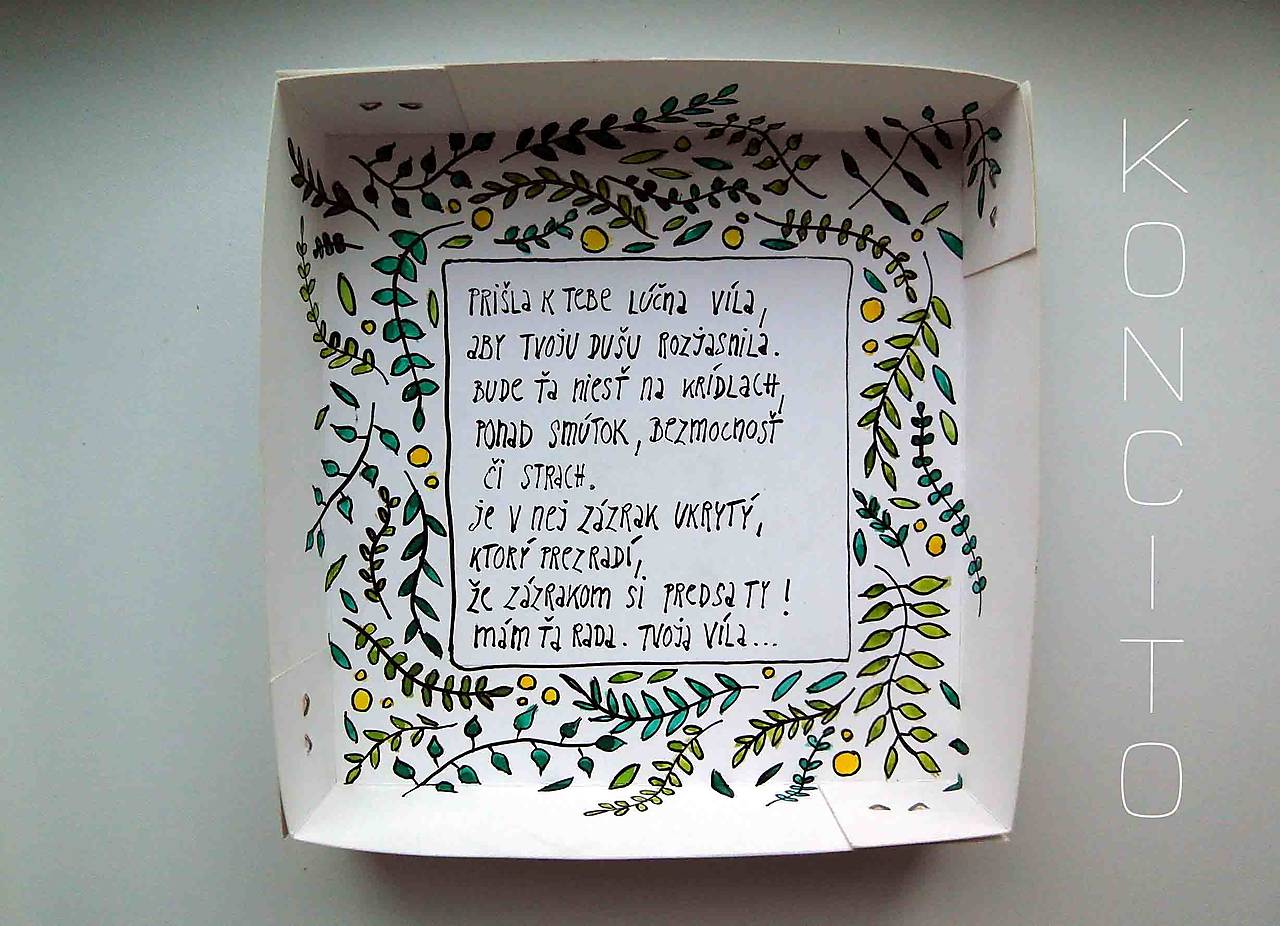 PRIŠLA K TEBE LÚČNA VÍLA,
ABY TVOJU DUŠU ROZJASNILA.
BUDE ŤA NIESŤ NA KRÍDLACH,
PONAD SMÚTOK, BEZMOCNOSŤ
ČI STRACH.
JE V NEJ ZÁZRAK UKRYTÝ,
KTORÝ PREZRADÍ,
ŽE ZÁZRAKOM SI PREDSA TY!
MÁM ŤA RADA. TVOJA VÍLA...
KONCITO